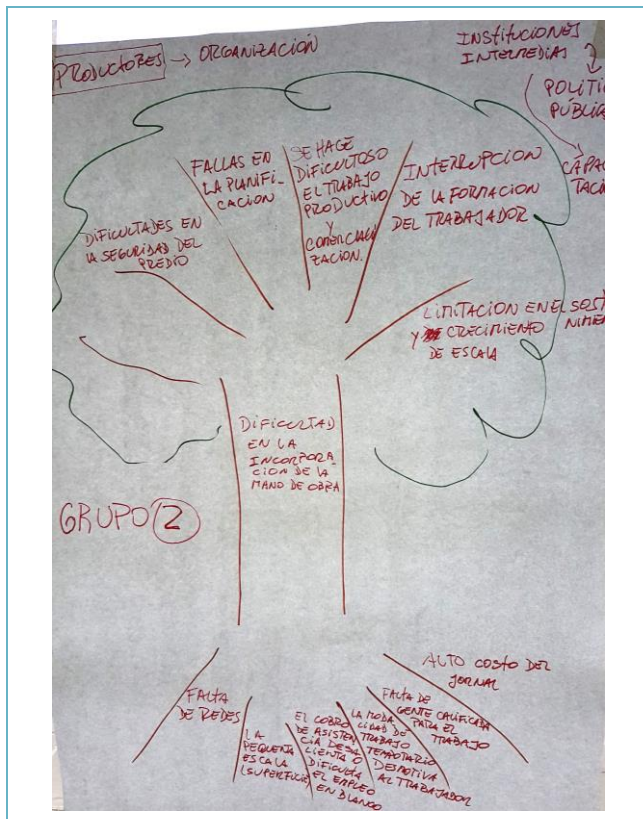 PRODUCTORES → ORGANIZACIÓN
INSTITUCIONES
INTERMEDIAS
POLITI
PÚBLICA
CÁPACI
TACIÓ
FALLAS EN
LA PLANIFI-
CACION
SE HACE
DIFICULTOSO
EL TRABAJO
PRODUCTIVO
Y
COMERCIALI
ZACIÓN.
INTERRUPCION
DE LA FORMACION
DEL TRABAJADOR
DIFICULTADES EN
LA SEGURIDAD DEL
PREDIO
LIMITACION EN EL SOST
Y CRECIMIENTO NIMIEN
DE ESCALA
DIFICULTAD
EN LA
INCORPORA-
CION DE LA
MANO DE OBRA
GRUPO 2
FALTA
DE REDES
LA
PEQUEÑA
ESCALA
(SUPERFICIE)
EL COBRO
DE ASISTEN
CIA DESA
LIENTA O
DIFICULTA
EL EMPLEO
EN BLANCO
LA MODA
LIDAD DE
TRABAJO
TEMPORARIO
DESMOTIVA
AL TRABAJADOR
FALTA DE
GENTE CALIFICADA
PARA EL
TRABAJO
ALTO COSTO DEL
JORNAL